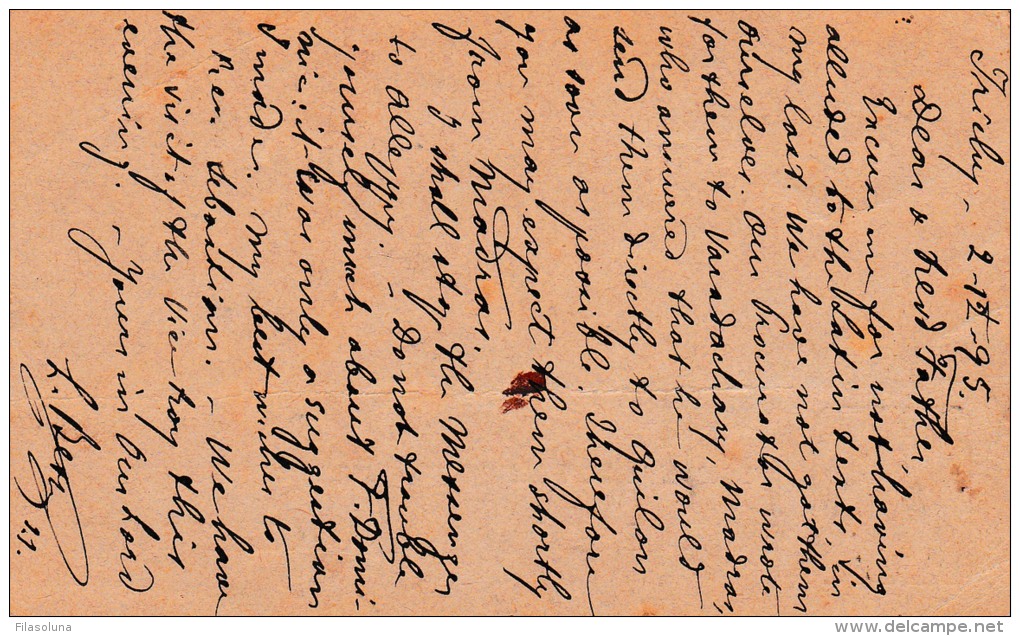 Trichy - 2-IX-95.
Dear & Revd Father
Excuse me for not having
alluded to the Latin texts, in
my last. We have not got them
ourselves. Our Procurator wrote
for them to Varadachary, Madras,
who answered that he would
send them directly to Quilon
as soon as possible. Therefore
you may expect them shortly
from Madras.
I shall stop the Messenger
to Alleppy. - Do not trouble
yourself much about F. Domi-
nic: it was only a suggestion
I made. My best wishes to
Rev. Sebastian. - We have
the visit of the Viceroy this
evening. - Yours in Our Lord
L. Betz
s.j.
Filasoluna
delcampe.net